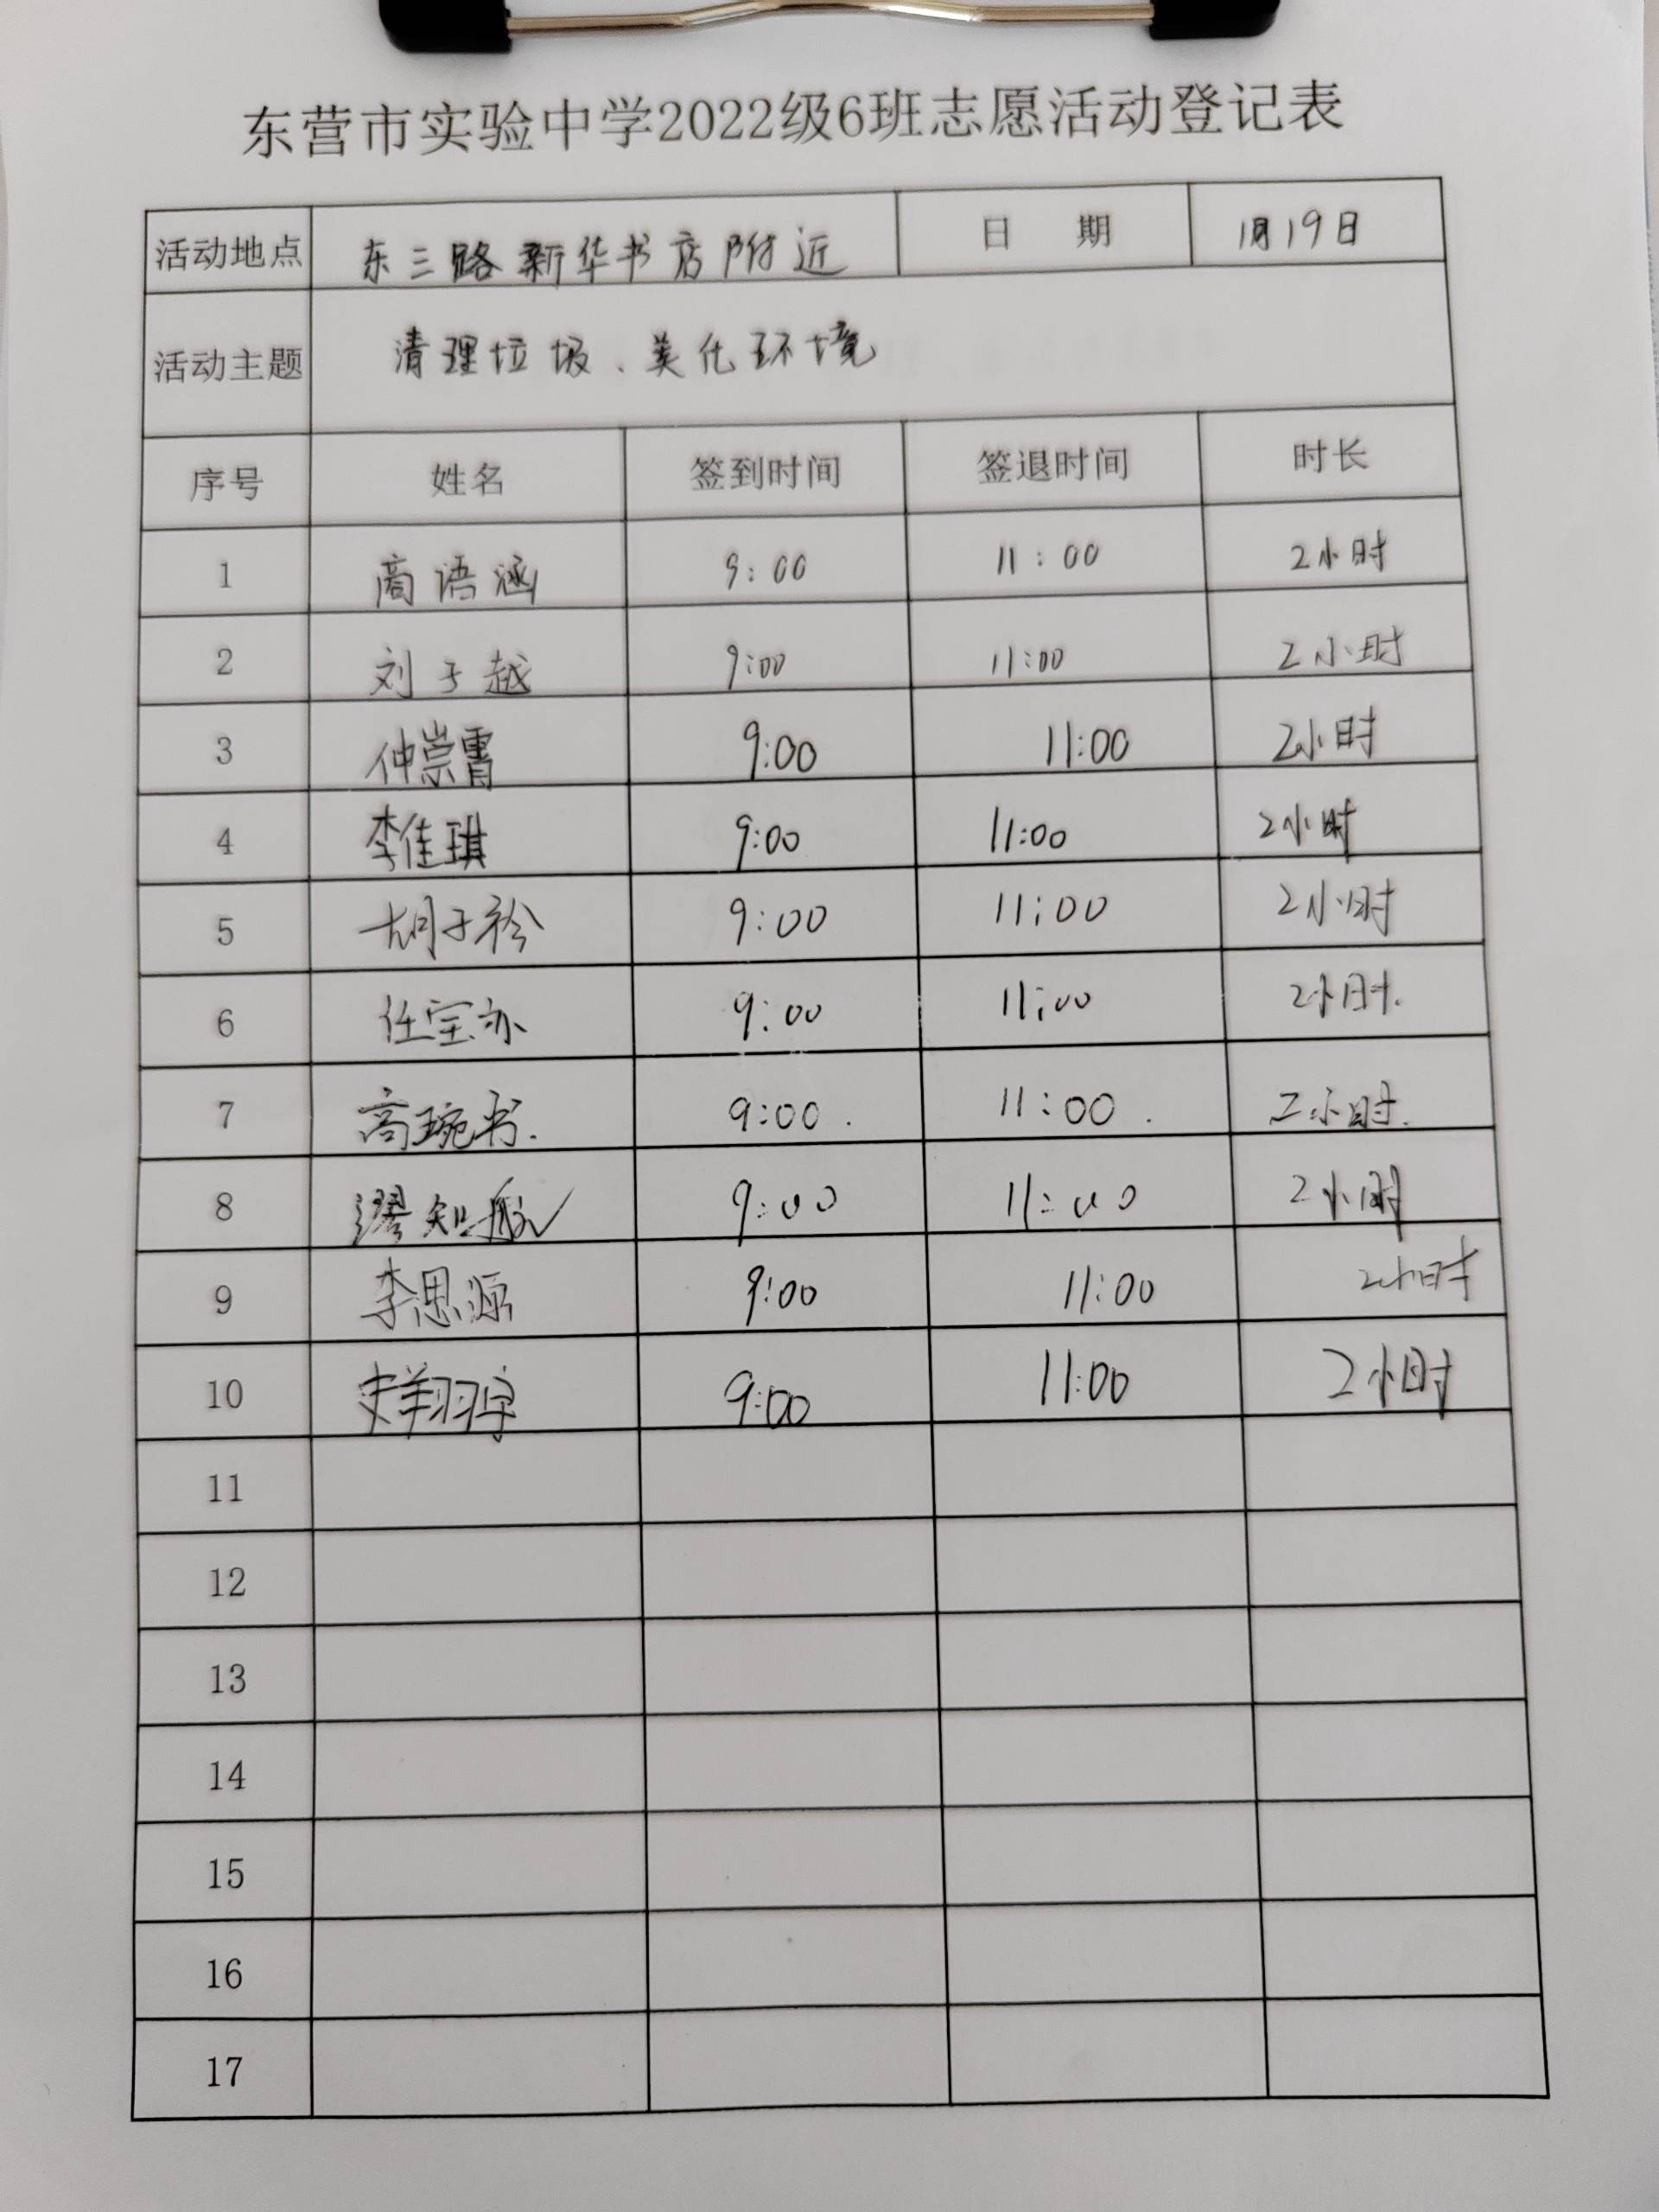 东营市实验中学2022级6班志愿活动登记表
活动地点 东三路新华书店附近 日 期 1月19日
活动主题 清理垃圾、美化环境
序号 姓名 签到时间 签退时间 时长
1 高语涵 9:00 11:00 2小时
2 刘于越 9:00 11:00 2小时
3 仲崇霄 9:00 11:00 2小时
4 李佳琪 9:00 11:00 2小时
5 胡子衿 9:00 11:00 2小时
6 任宝亦 9:00 11:00 2小时.
7 高琬书. 9:00. 11:00. 2小时.
8 知航 9:00 11:00 2小时
9 李思源 9:00 11:00 2小时
10 史翔宇 9:00 11:00 2小时
11
12
13
14
15
16
17